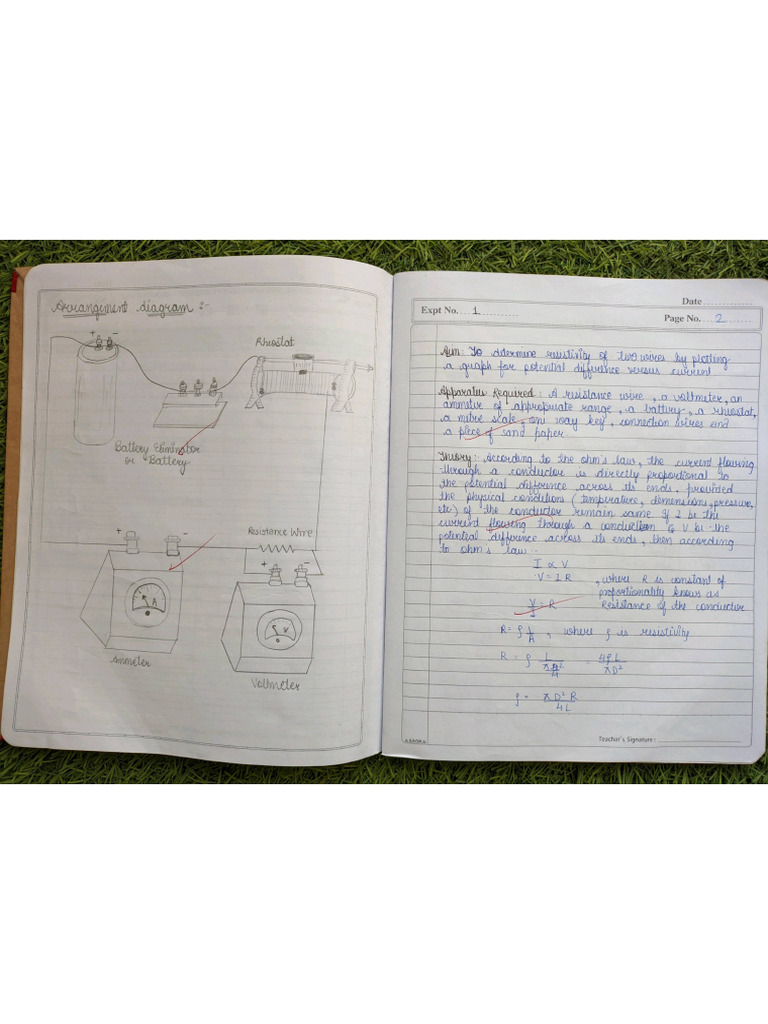 Arrangement diagram :-
+ -
Rheostat
Battery Eliminator
or Battery
Resistance Wire
+ -
+ -
A
V
Ammeter
Voltmeter
Date
Expt No. 1
Page No. 2
Aim: To determine resistivity of two wires by plotting
a graph for potential difference versus current
Apparatus Required : A resistance wire, a voltmeter, an
ammeter of appropriate range, a battery, a rheostat,
a metre scale, one way key, connection wires and
a piece of sand paper
Theory : According to the ohm's law, the current flowing
through a conductor is directly proportional to
the potential difference across its ends, provided
the physical conditions ( temperature, demensions, pressure,
etc) of the conductor remain same. If I be the
current flowing through a conduction & V be the
potential difference across its ends, then according
to ohm's law.
I ∝ V
V = I R , where R is constant of
proportionality knows as
V/I = R Resistance of the conductor
R = ρ l/A , where ρ is resistivity
R = ρ L/(πD²/4) = 4ρL/πD²
ρ = πD²R/4L
Teacher's Signature :